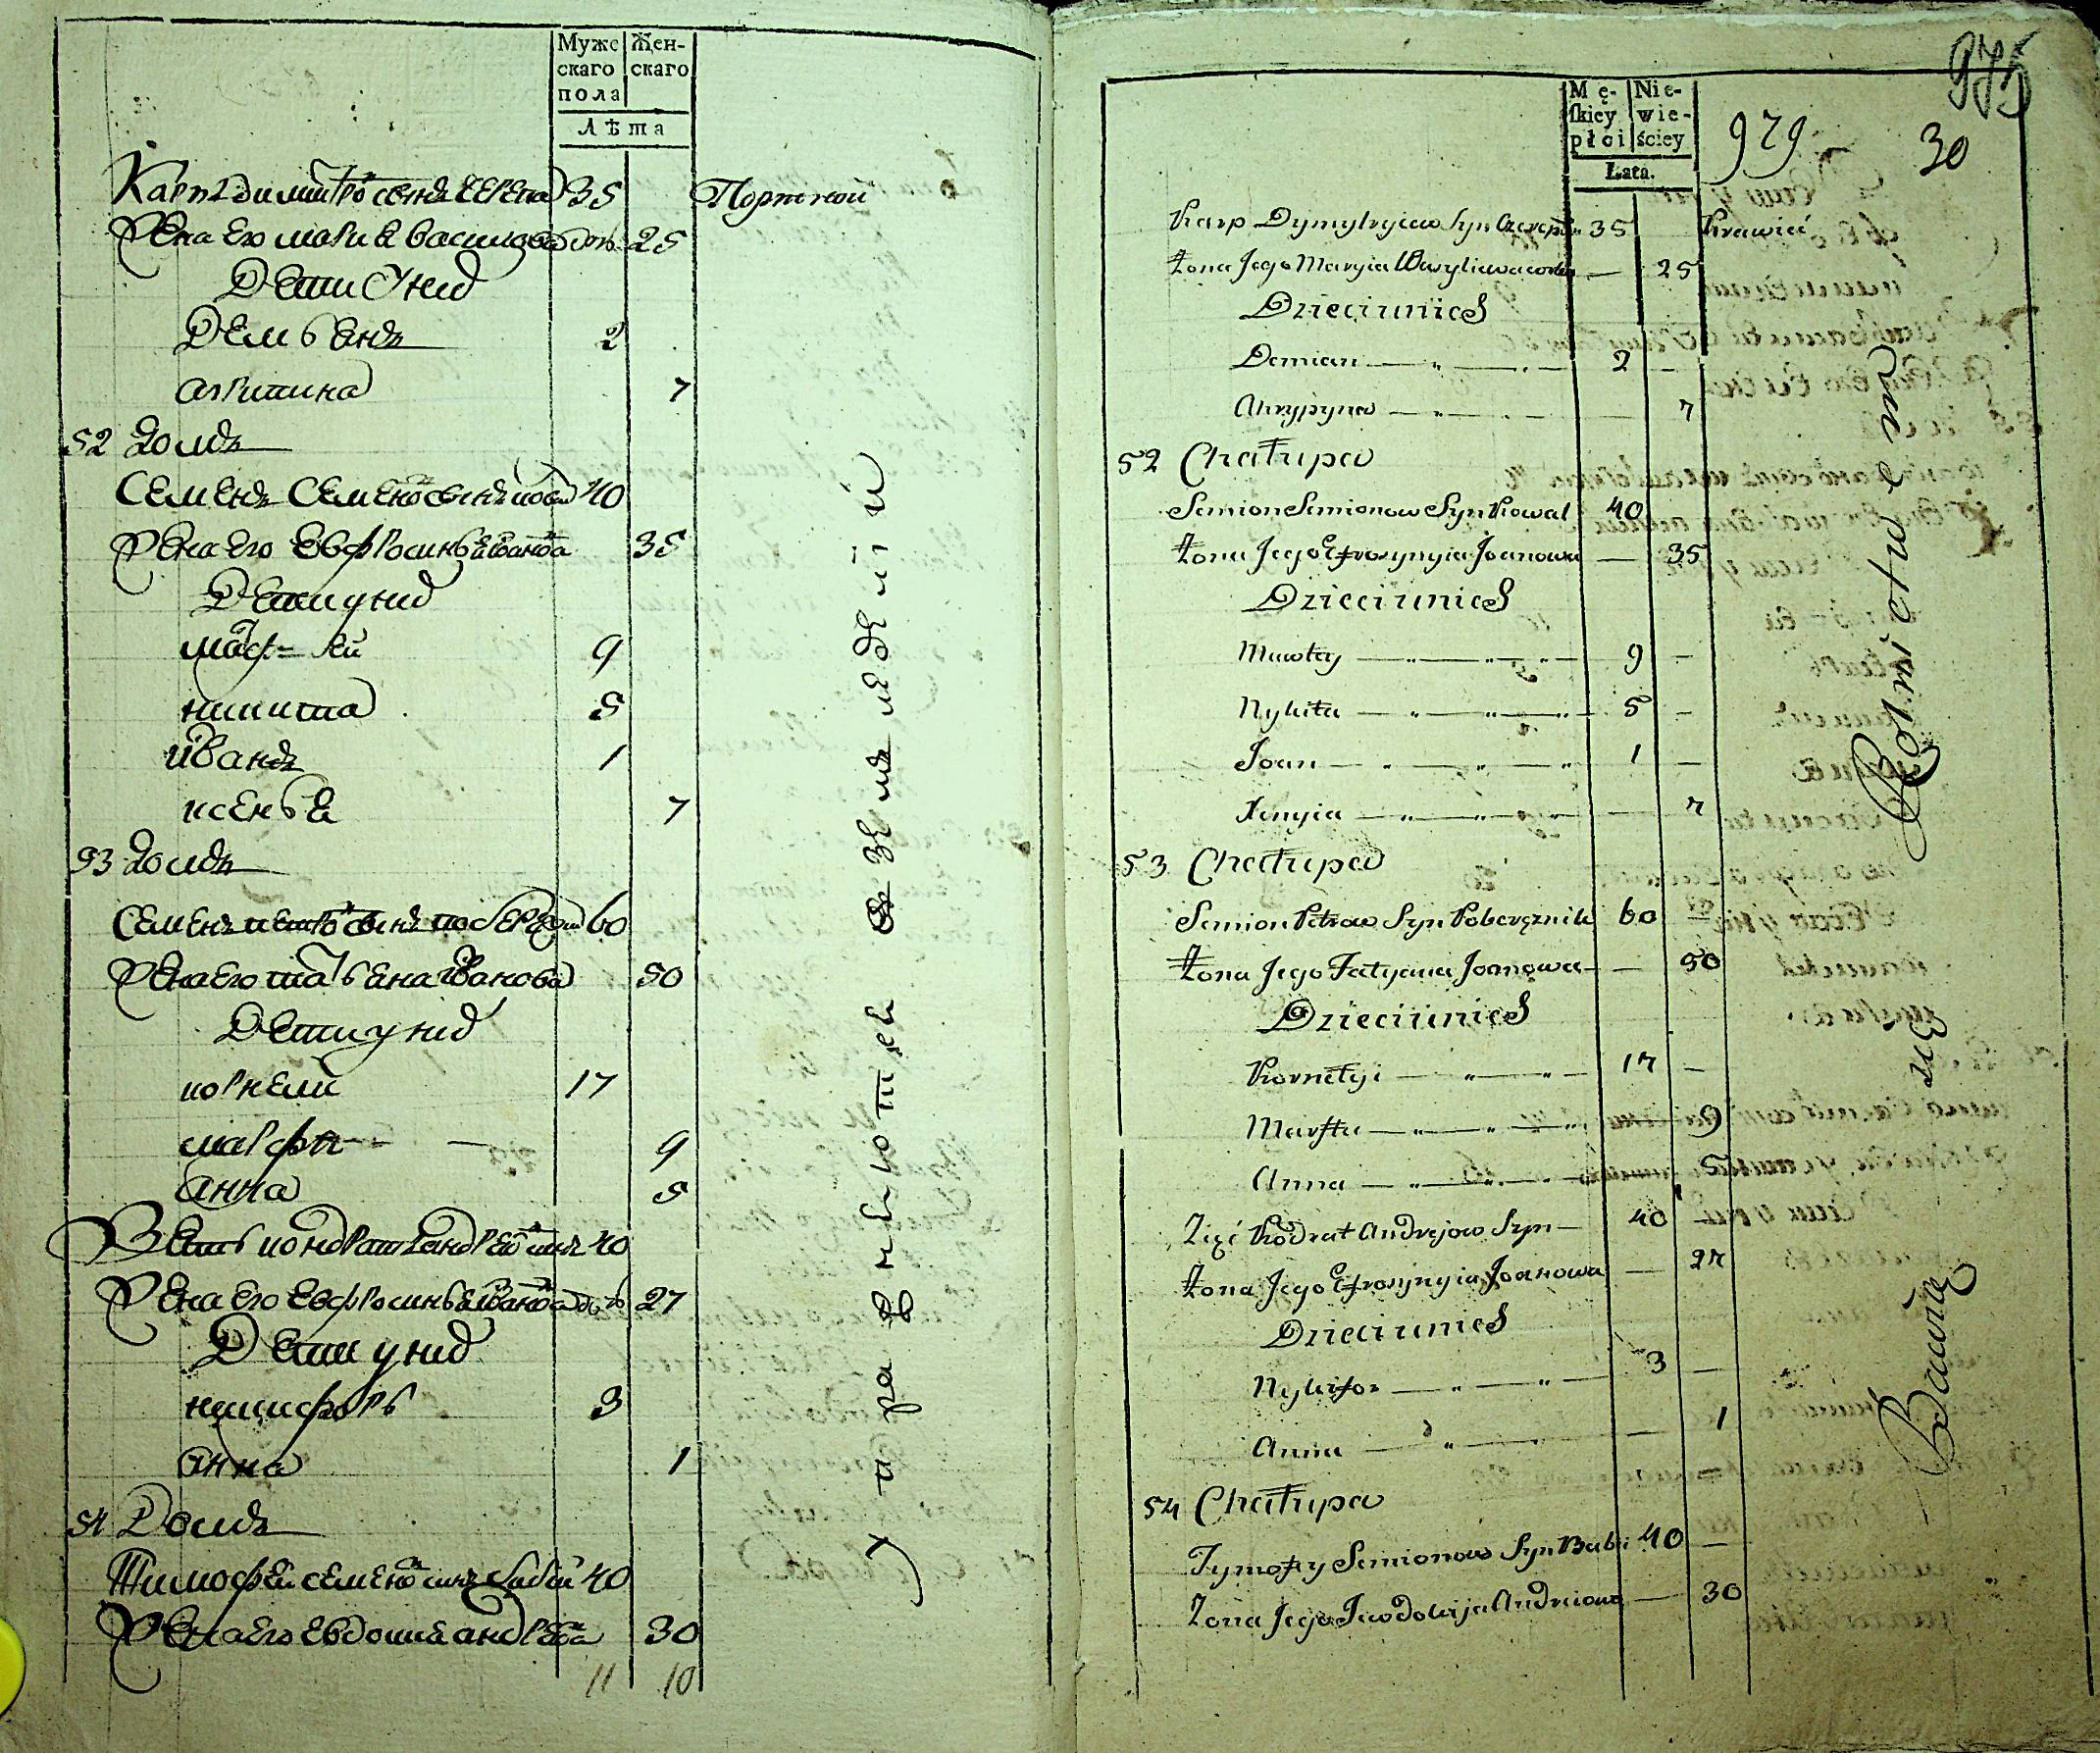 Мужс Жен-
скаго скаго
пола
Лѣта
Карпъ димитровъ сынъ Черепа 35 Портной
Жена Его мариа василева дочь 25
Дети У нııхъ
Демьѧнъ 2
агрипина 7
52 домъ
Семенъ Семеновъ сынъ коваль 40
Жена Его Евфросиньѧ иванова 35
Дети у нихъ
матфей 9
никита 5
иванъ 1
ксеньѧ 7
53 домъ
Семенъ петровъ сынъ побережникъ 60
Жена Его татьѧна иванова 50
Дети у нихъ
корнели 17
марфа 9
Анна 5
Зѧть кондратъ андреевъ сынъ 40
Жена Его Евфросиньѧ иванова дочь 27
Дети у нихъ
никифоръ 3
анна 1
54 Домъ
Тимофей семеновъ сынъ бабий 40
Жена Его Евдокиѧ андреева 30
11 10
Упражнѧютсѧ въ земледелии
Mę- Nie-
skiey wie-
płci ściey
Łata.
975
979 30
Karp Dymytryiew Syn Czerepa 35 Krawiec
Żona Jego Maryia Wasyliewa corka — 25
Dzieci u nich
Demian 2 —
Ahrypyna — 7
52 Chałupa
Semion Semionow Syn Kowal 40
Żona Jego Efrosynyia Joanowa — 35
Dzieci u nich
Mawtey 9 —
Nykita 5 —
Joan 1 —
Xenyia — 7
53 Chałupa
Semion Petrow Syn Poberężnik 60 —
Żona Jego Tatyana Joanowa — 50
Dzieci u nich
Kornełyi 17 —
Marfta 9
Anna 5
Zięć Kodrat Andrejow Syn 40 —
Żona Jego Efrosynyia Joanowa — 27
Dzieci u nich
Nykifor 3 —
Anna — 1
54 Chałupa
Tymofty Semionow Syn Babii 40 —
Żona Jego Jewdokija Andreiowa — 30
Bawią się Rolnictwem